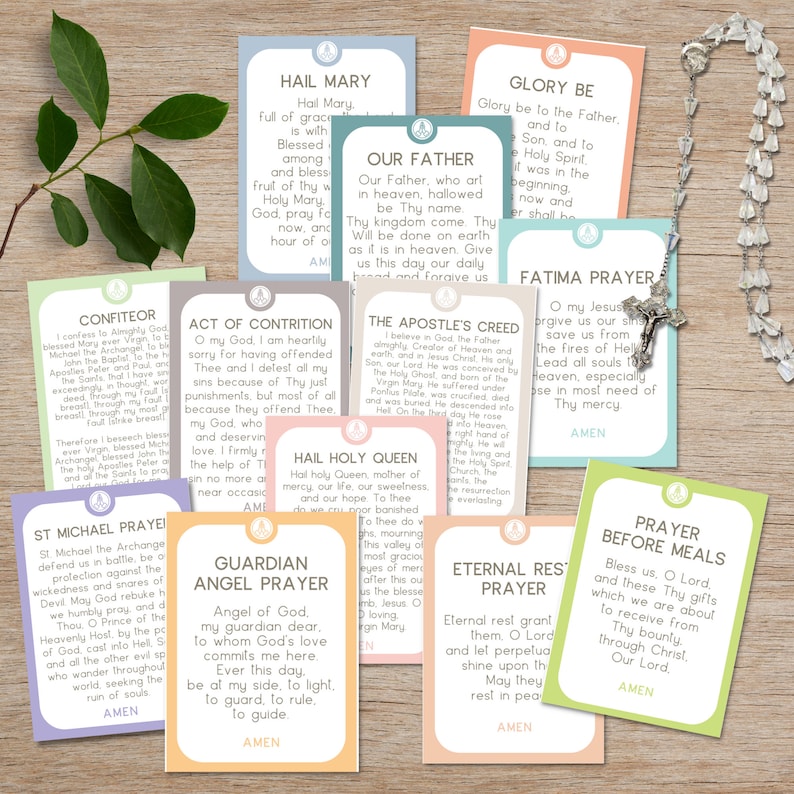 HAIL MARY
Hail Mary,
full of grace the Lord
is with
Blessed
among
and bless
fruit of thy w
Holy Mary,
God, pray f
now, and
hour of ou
AM
GLORY BE
Glory be to the Father,
and to
Son, and to
Holy Spirit.
it was in the
beginning,
now and
shall be
OUR FATHER
Our Father, who art
in heaven, hallowed
be Thy name.
Thy kingdom come. Thy
Will be done on earth
as it is in heaven. Give
us this day our daily
bread and forgive us
FATIMA PRAYER
O my Jesus
forgive us our sins
save us from
the fires of Hell
Lead all souls to
Heaven, especially
those in most need of
Thy mercy.
AMEN
CONFITEOR
I confess to Almighty God,
blessed Mary ever Virgin, to b
Michael the Archangel, to ble
John the Baptist, to the ho
Apostles Peter and Paul, and
the Saints, that I have sin
exceedingly, in thought, wor
deed, through my fault [s
breast], through my fault
breast], through my most gr
fault [strike breast].
Therefore I beseech blesse
ever Virgin, blessed Michae
Archangel, blessed John the
the holy Apostles Peter an
and all the Saints to pra
Lord our God for me
ACT OF CONTRITION
O my God, I am heartily
sorry for having offended
Thee and I detest all my
sins because of Thy just
punishments, but most of all
because they offend Thee,
my God, who
and deservin
love. I firmly r
the help of Th
sin no more an
near occasion
AM
THE APOSTLE'S CREED
I believe in God, the Father
almighty, Creator of Heaven and
earth, and in Jesus Christ, His only
Son, our Lord, He was conceived by
the Holy Ghost, and born of the
Virgin Mary. He suffered under
Pontius Pilate, was crucified, died
and was buried. He descended into
Hell. On the third day He rose
right hand of
almighty. He will
the living and
the Holy Spirit,
Church, the
of saints, the
the resurrection
everlasting.
HAIL HOLY QUEEN
Hail holy Queen, mother of
mercy, our life, our sweetness,
and our hope. To thee
do we cry, poor banished
To thee do w
mourning
this valley of
most graciou
eyes of mercy
after this ou
the blessed
womb, Jesus. O
O loving,
Virgin Mary.
ST MICHAEL PRAYER
St. Michael the Archange
defend us in battle, be o
protection against the
wickedness and snares of
Devil. May God rebuke h
we humbly pray, and d
Thou, O Prince of the
Heavenly Host, by the po
of God, cast into Hell, S
and all the other evil sp
who wander throughout
world, seeking the
ruin of souls.
AMEN
GUARDIAN
ANGEL PRAYER
Angel of God,
my guardian dear,
to whom God's love
commits me here.
Ever this day,
be at my side, to light,
to guard, to rule,
to guide.
AMEN
ETERNAL REST
PRAYER
Eternal rest grant
them, O Lord
and let perpetual
shine upon the
May they
rest in peac
AMEN
PRAYER
BEFORE MEALS
Bless us, O Lord,
and these Thy gifts
which we are about
to receive from
Thy bounty,
through Christ,
Our Lord,
AMEN